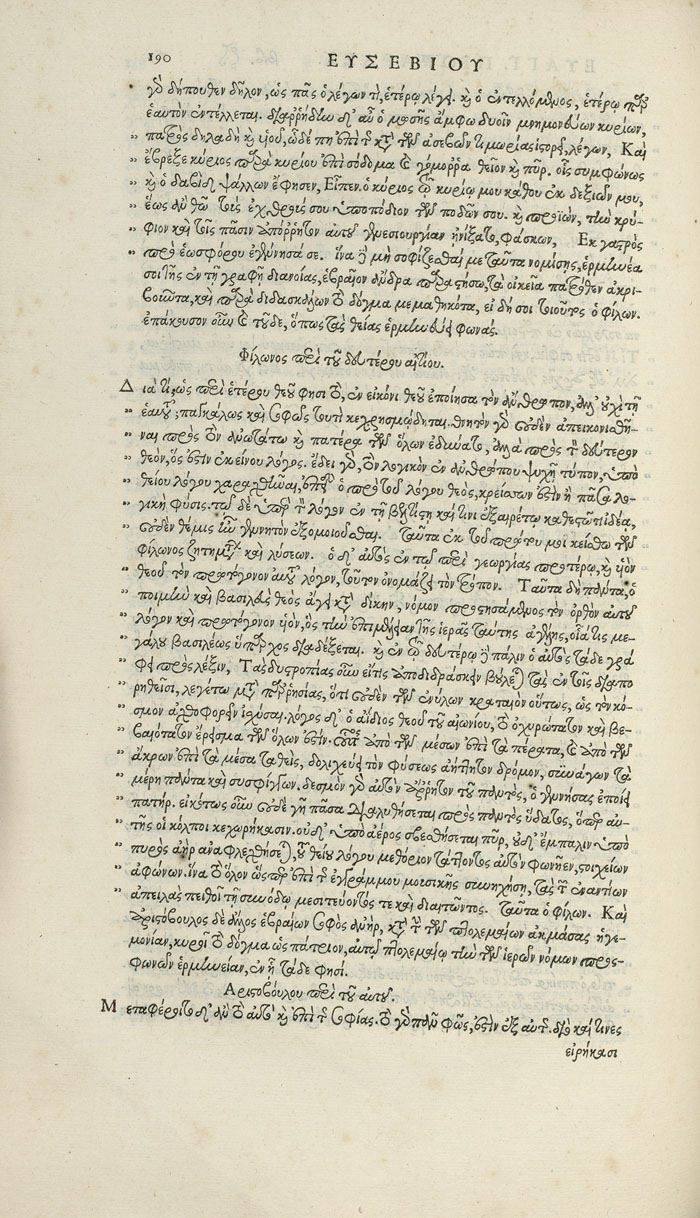 190 ΕΥΣΕΒΙΟΥ
γὰρ δήπουθεν δῆλον, ὡς πᾶς ὁ λέγων τὶ, ἑτέρῳ λέγει. καὶ ὁ ἐντελλόμενος, ἑτέρῳ παρ'
ἑαυτὸν ἐντέλλεται. διαρρήδην δ' αὖ ὁ μωσῆς ἄμφω δυοῖν μνημονεύων κυρίων,
πατρὸς δηλαδὴ καὶ ἱοῦ, ὧδέ πη ἐπὶ τῆς κατὰ τῶν ἀσεβῶν τιμωρίας ἱστορεῖ, λέγων, Καὶ
" ἔβρεξε κύριος παρὰ κυρίου ἐπὶ σόδομα καὶ γόμορρα θεῖον καὶ πῦρ. οἷς συμφώνως
" καὶ ὁ δαβὶδ ψάλλων ἔφησεν, Εἶπεν ὁ κύριος τῷ κυρίῳ μου κάθου ἐκ δεξιῶν μου,
" ἕως ἂν θῶ τοὺς ἐχθρούς σου ὑποπόδιον τῶν ποδῶν σου. καὶ προϊὼν, τὴν κρύ-
" φιον καὶ τοῖς πᾶσιν ἀπόρρητον αὐτοῦ γενεσιουργίαν ἠνίξατο, φάσκων, Εκ γαστρὸς
" πρὸ ἑωσφόρου ἐγέννησά σε. ἵνα δὲ μὴ σοφίζεσθαί με ταῦτα νομίσῃς, ἑρμηνέα
σοι τῆς ἐν τῇ γραφῇ διανοίας, ἑβραῖον ἄνδρα παραστήσω, τὰ οἰκεῖα πατρόθεν ἀκρι-
βοῦντα, καὶ παρὰ διδασκάλων τὸ δόγμα μεμαθηκότα, εἰ δή σοι τοιοῦτος ὁ φίλων.
ἐπάκουσον οὖν καὶ τοῦδε, ὅπως τὰς θείας ἑρμηνεύει φωνάς.
Φίλωνος περὶ τοῦ δευτέρου αἰτίου.
Δ ιὰ τί, ὡς περὶ ἑτέρου θεοῦ φησι τὸ, ἐν εἰκόνι θεοῦ ἐποίησα τὸν ἄνθρωπον, ἀλλ' οὐχὶ τῇ
" ἑαυτοῦ; παγκάλως καὶ σοφῶς τουτὶ κεχρησμῴδηται. θνητὸν γὰρ οὐδὲν ἀπεικονισθῆ-
" ναι πρὸς τὸν ἀνωτάτω καὶ πατέρα τῶν ὅλων ἐδύνατο, ἀλλὰ πρὸς τὸν δεύτερον
" θεὸν, ὅς ἐστιν ἐκείνου λόγος. ἔδει γὰρ, τὸν λογικὸν ἐν ἀνθρώπου ψυχῇ τύπον, ὑπὸ
" θείου λόγου χαραχθῆναι, ἐπειδὴ ὁ πρὸ τοῦ λόγου θεὸς, κρείσσων ἐστὶν ἢ πᾶσα λο-
" γικὴ φύσις. τῷ δὲ ὑπὲρ τὸν λόγον ἐν τῇ βελτίστῃ καί τινι ἐξαιρέτῳ καθεστῶτι ἰδέᾳ,
" οὐδὲν θέμις ἦν γεννητὸν ἐξομοιοῦσθαι. Ταῦτα ἐκ τοῦ πρώτου μοι κείσθω τῶν
φίλωνος ζητημάτων καὶ λύσεων. ὁ δ' αὐτὸς ἐν τῷ περὶ γεωργίας προτέρῳ, καὶ ἱὸν
θεοῦ τὸν πρωτόγονον αὐτοῦ λόγον, τοῦτον ὀνομάζει τὸν τρόπον. Ταῦτα δὴ πάντα, ὁ
" ποιμὴν καὶ βασιλεὺς θεὸς ἄγει κατὰ δίκην, νόμον προστησάμενος τὸν ὀρθὸν αὐτοῦ
" λόγον καὶ πρωτόγονον ἱὸν, ὃς τὴν ἐπιμέλειαν τῆς ἱερᾶς ταύτης ἀγέλης, οἷά τις με-
" γάλου βασιλέως ὕπαρχος διαδέξεται. καὶ ἐν τῷ δευτέρῳ δὲ πάλιν ὁ αὐτὸς τάδε γρά
" φει πρὸς λέξιν, Τὰς δυστροπίας οὖν εἴ τις ἀποδιδράσκειν βούλεται τὰς ἐν τοῖς διαπο
" ρηθεῖσι, λεγέτω μετὰ παρρησίας, ὅτι οὐδὲν τῶν ἐνύλων κραταιὸν οὕτως, ὡς τὸν κό-
" σμον ἀχθοφορεῖν ἰσχύσαι. λόγος δ' ὁ ἀΐδιος θεοῦ τοῦ αἰωνίου, τὸ ὀχυρώτατον καὶ βε-
" βαιότατον ἔρεισμα τῶν ὅλων ἐστίν. οὗτος ἀπὸ τῶν μέσων ἐπὶ τὰ πέρατα, καὶ ἀπὸ τῶν
" ἄκρων ἐπὶ τὰ μέσα ταθεὶς, δολιχεύει τὸν φύσεως ἀήττητον δρόμον, συνάγων τὰ
" μέρη πάντα καὶ συσφίγγων. δεσμὸν γὰρ αὐτὸν ἄρρηκτον τοῦ παντὸς, ὁ γεννήσας ἐποίει
" πατήρ. εἰκότως οὖν οὐδὲ γῆ πᾶσα διαλυθήσεται πρὸς παντὸς ὕδατος, ὅπερ αὐ-
" τῆς οἱ κόλποι κεχωρήκασιν. οὐδ' ὑπὸ ἀέρος σβεσθήσεται πῦρ, οὐδ' ἔμπαλιν ὑπὸ
" πυρὸς ἀὴρ ἀναφλεχθήσεται, τοῦ θείου λόγου μεθόριον τάττοντος αὐτὸν φωνῆεν, στοιχείων
" ἀφώνων. ἵνα τὸ ὅλον ὥσπερ ἐπὶ τῆς ἐγγράμμου μουσικῆς συνηχήσῃ, τὰς τῶν ἐναντίων
" ἀπειλὰς πειθοῖ τῇ συνόδῳ μεσιτεύοντός τε καὶ διαιτῶντος. Ταῦτα ὁ φίλων. Καὶ
Ἀριστόβουλος δὲ ἄλλος ἑβραίων σοφὸς ἀνὴρ, κατὰ τὴν τῶν πτολεμαίων ἀκμάσας ἡγε-
μονίαν, κυροῖ τὸ δόγμα ὡς πάτριον, αὐτῷ πτολεμαίῳ τὴν τῶν ἱερῶν νόμων προσ-
φωνῶν ἑρμηνείαν, ἐν ᾗ τάδε φησί.
Αριστοβούλου περὶ τοῦ αὐτοῦ.
Μ εταφέροιτο δ' ἂν τὸ αὐτὸ καὶ ἐπὶ τῆς σοφίας. τὸ γὰρ πᾶν φῶς, ἐστὶν ἐξ αὐτῆς. διὸ καί τινες
εἰρήκασι